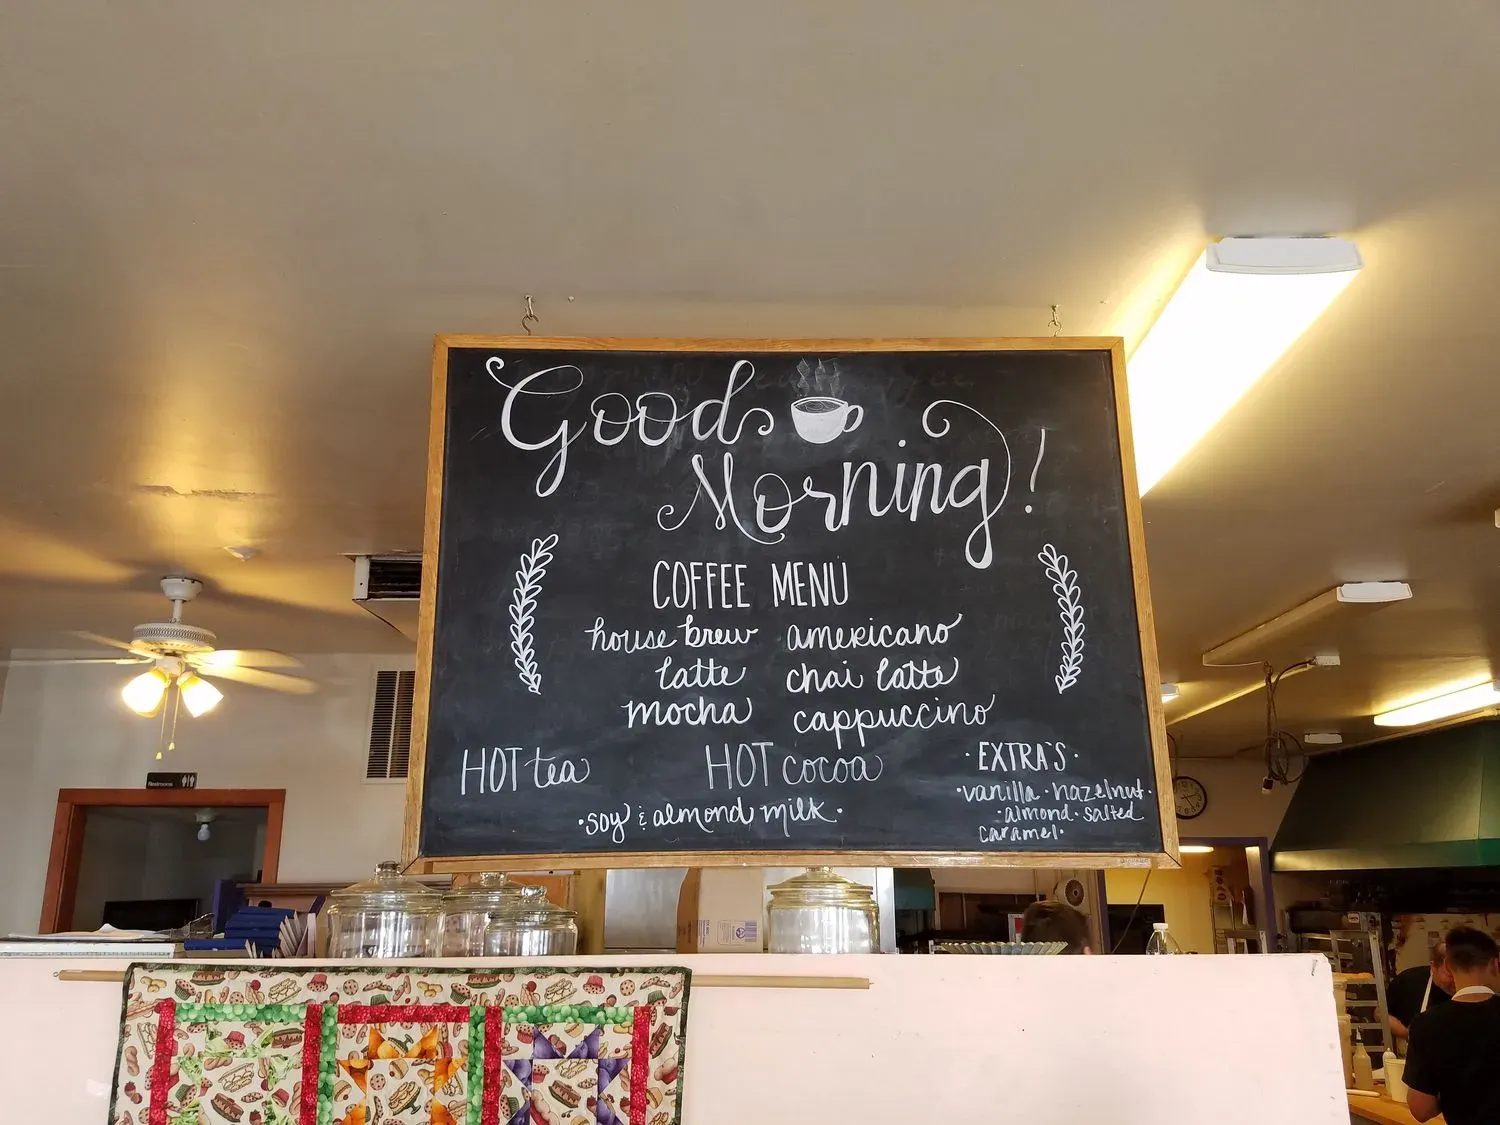 Good
Morning!
COFFEE MENU
house brew americano
latte chai latte
mocha cappuccino
HOT tea HOT cocoa
·soy & almond milk·
·EXTRA'S·
·vanilla·hazelnut·
·almond·salted
caramel·
Restrooms